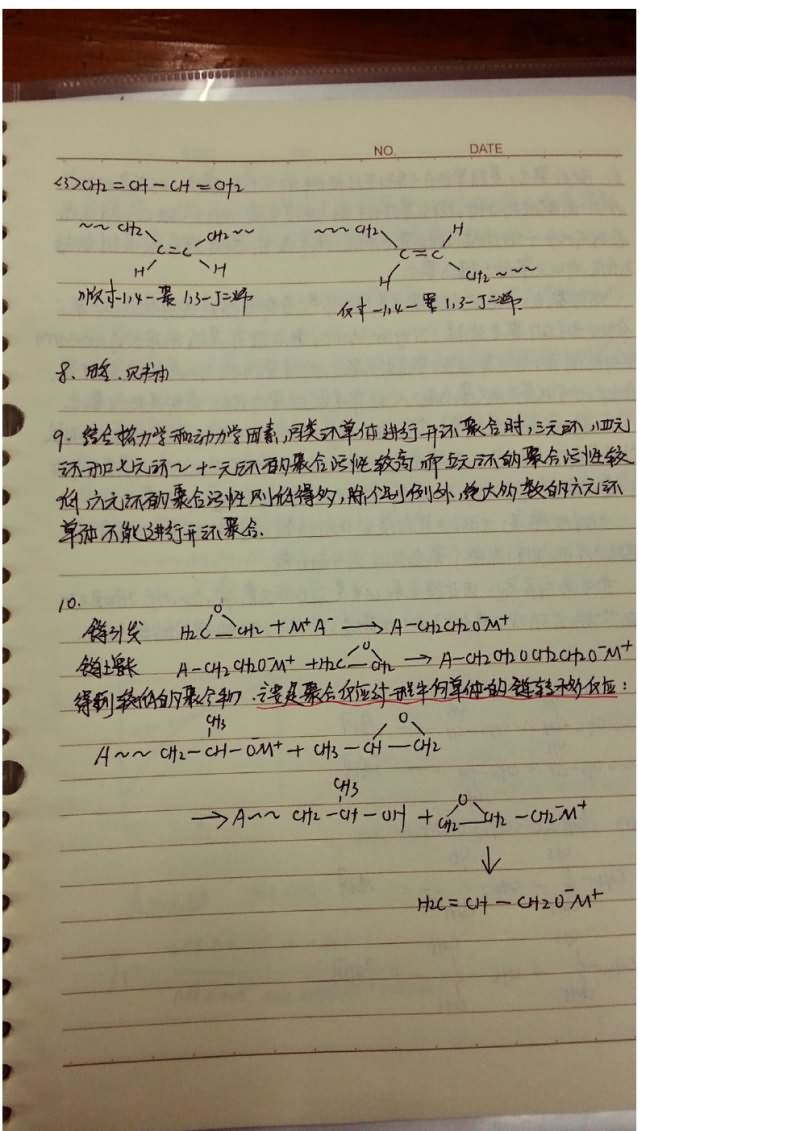 NO. DATE
<3>CH2=CH-CH=CH2
~~CH2 CH2~~ ~~~CH2 H
C=C C=C
H H H CH2~~~
顺式-1,4-聚1,3-丁二烯 反式-1,4-聚1,3-丁二烯
8. 略.见书由
9. 结合热力学和动力学因素,同类环单体进行开环聚合时,三元环,四元
环和七元环~十一元环的聚合活性较高而五元环的聚合活性较
低,六元环的聚合活性则低得多,除个别例外,绝大多数的六元环
单体不能进行开环聚合.
10.
链引发 H2C-CH2 + M+A- → A-CH2CH2O-M+
O
链增长 A-CH2CH2O-M+ + H2C-CH2 → A-CH2CH2OCH2CH2O-M+
O
得到较低的聚合物.主要是聚合反应过程中向单体的链转移反应:
CH3 O
A~~CH2-CH-O-M+ + CH3-CH-CH2
CH3 O
→A~~CH2-CH-OH + CH2-CH2-CH2-M+
↓
H2C=CH-CH2O-M+